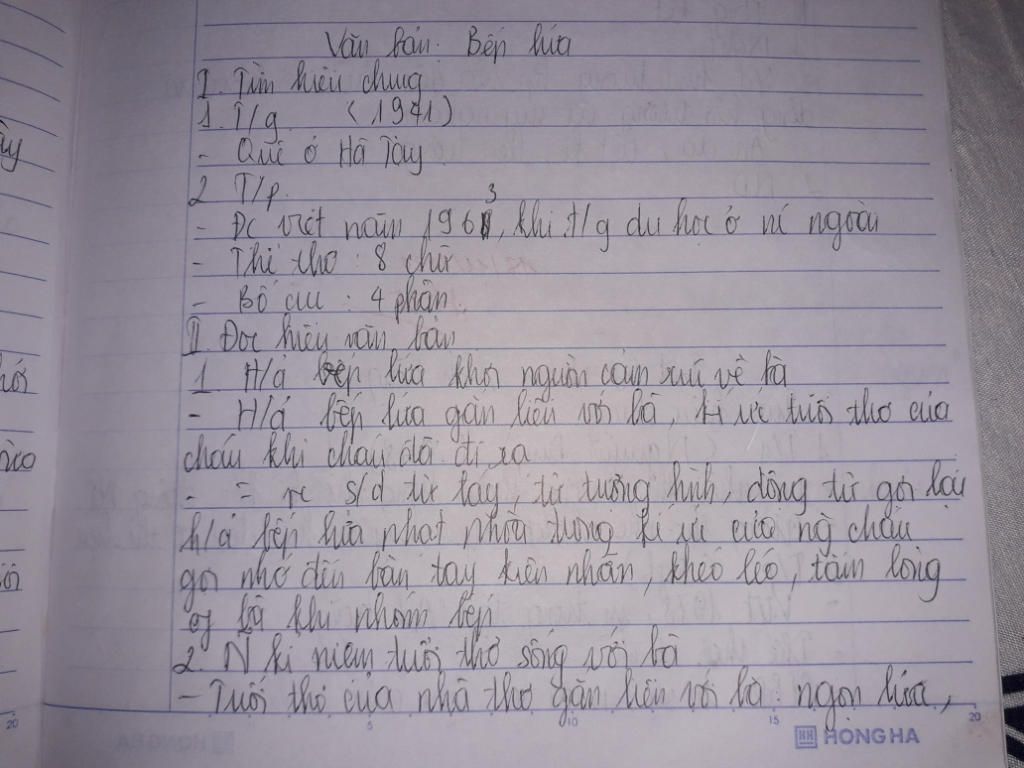 Văn bản: Bếp lửa
I. Tìm hiểu chung
1. T/g (1941)
- Quê ở Hà Tây
2 T/p.
- Đc viết năm 1963, khi t/g du học ở nc ngoài
- Thể thơ: 8 chữ
- Bố cục: 4 phần.
II Đọc hiểu văn bản
1 H/ả bếp lửa khơi nguồn cảm xúc về bà
- H/ả bếp lửa gắn liền với bà, kí ức tuổi thơ của
cháu khi cháu đã đi xa
- = vc s/d từ láy, từ tượng hình, động từ gợi lại
h/ả bếp lửa nhạt nhòa trong kí ức của ng cháu
gợi nhớ đến bàn tay kiên nhẫn, khéo léo, tấm lòng
bà khi nhóm bếp
2. N kỉ niệm tuổi thơ sống với bà
- Tuổi thơ của nhà thơ gắn liền với bà: ngọn lửa,
5 10 15 20
HỒNG HÀ
20